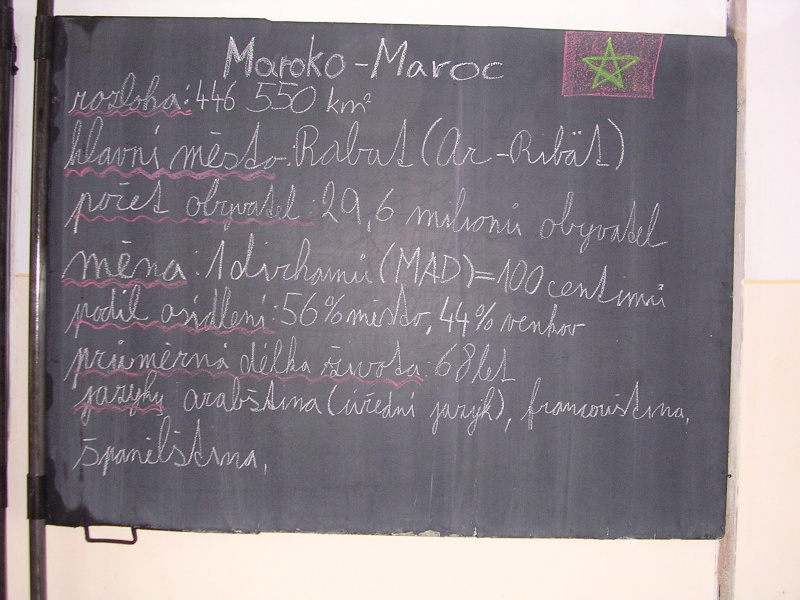 Maroko - Maroc
rozloha: 446 550 km²
hlavní město: Rabat (Ar-Ribät)
počet obyvatel: 29,6 milionů obyvatel
měna: 1 dirhamů (MAD) = 100 centimů
podíl osídlení: 56% město, 44% venkov
průměrná délka života: 68 let
jazyky arabština (úřední jazyk), francouština,
španělština,